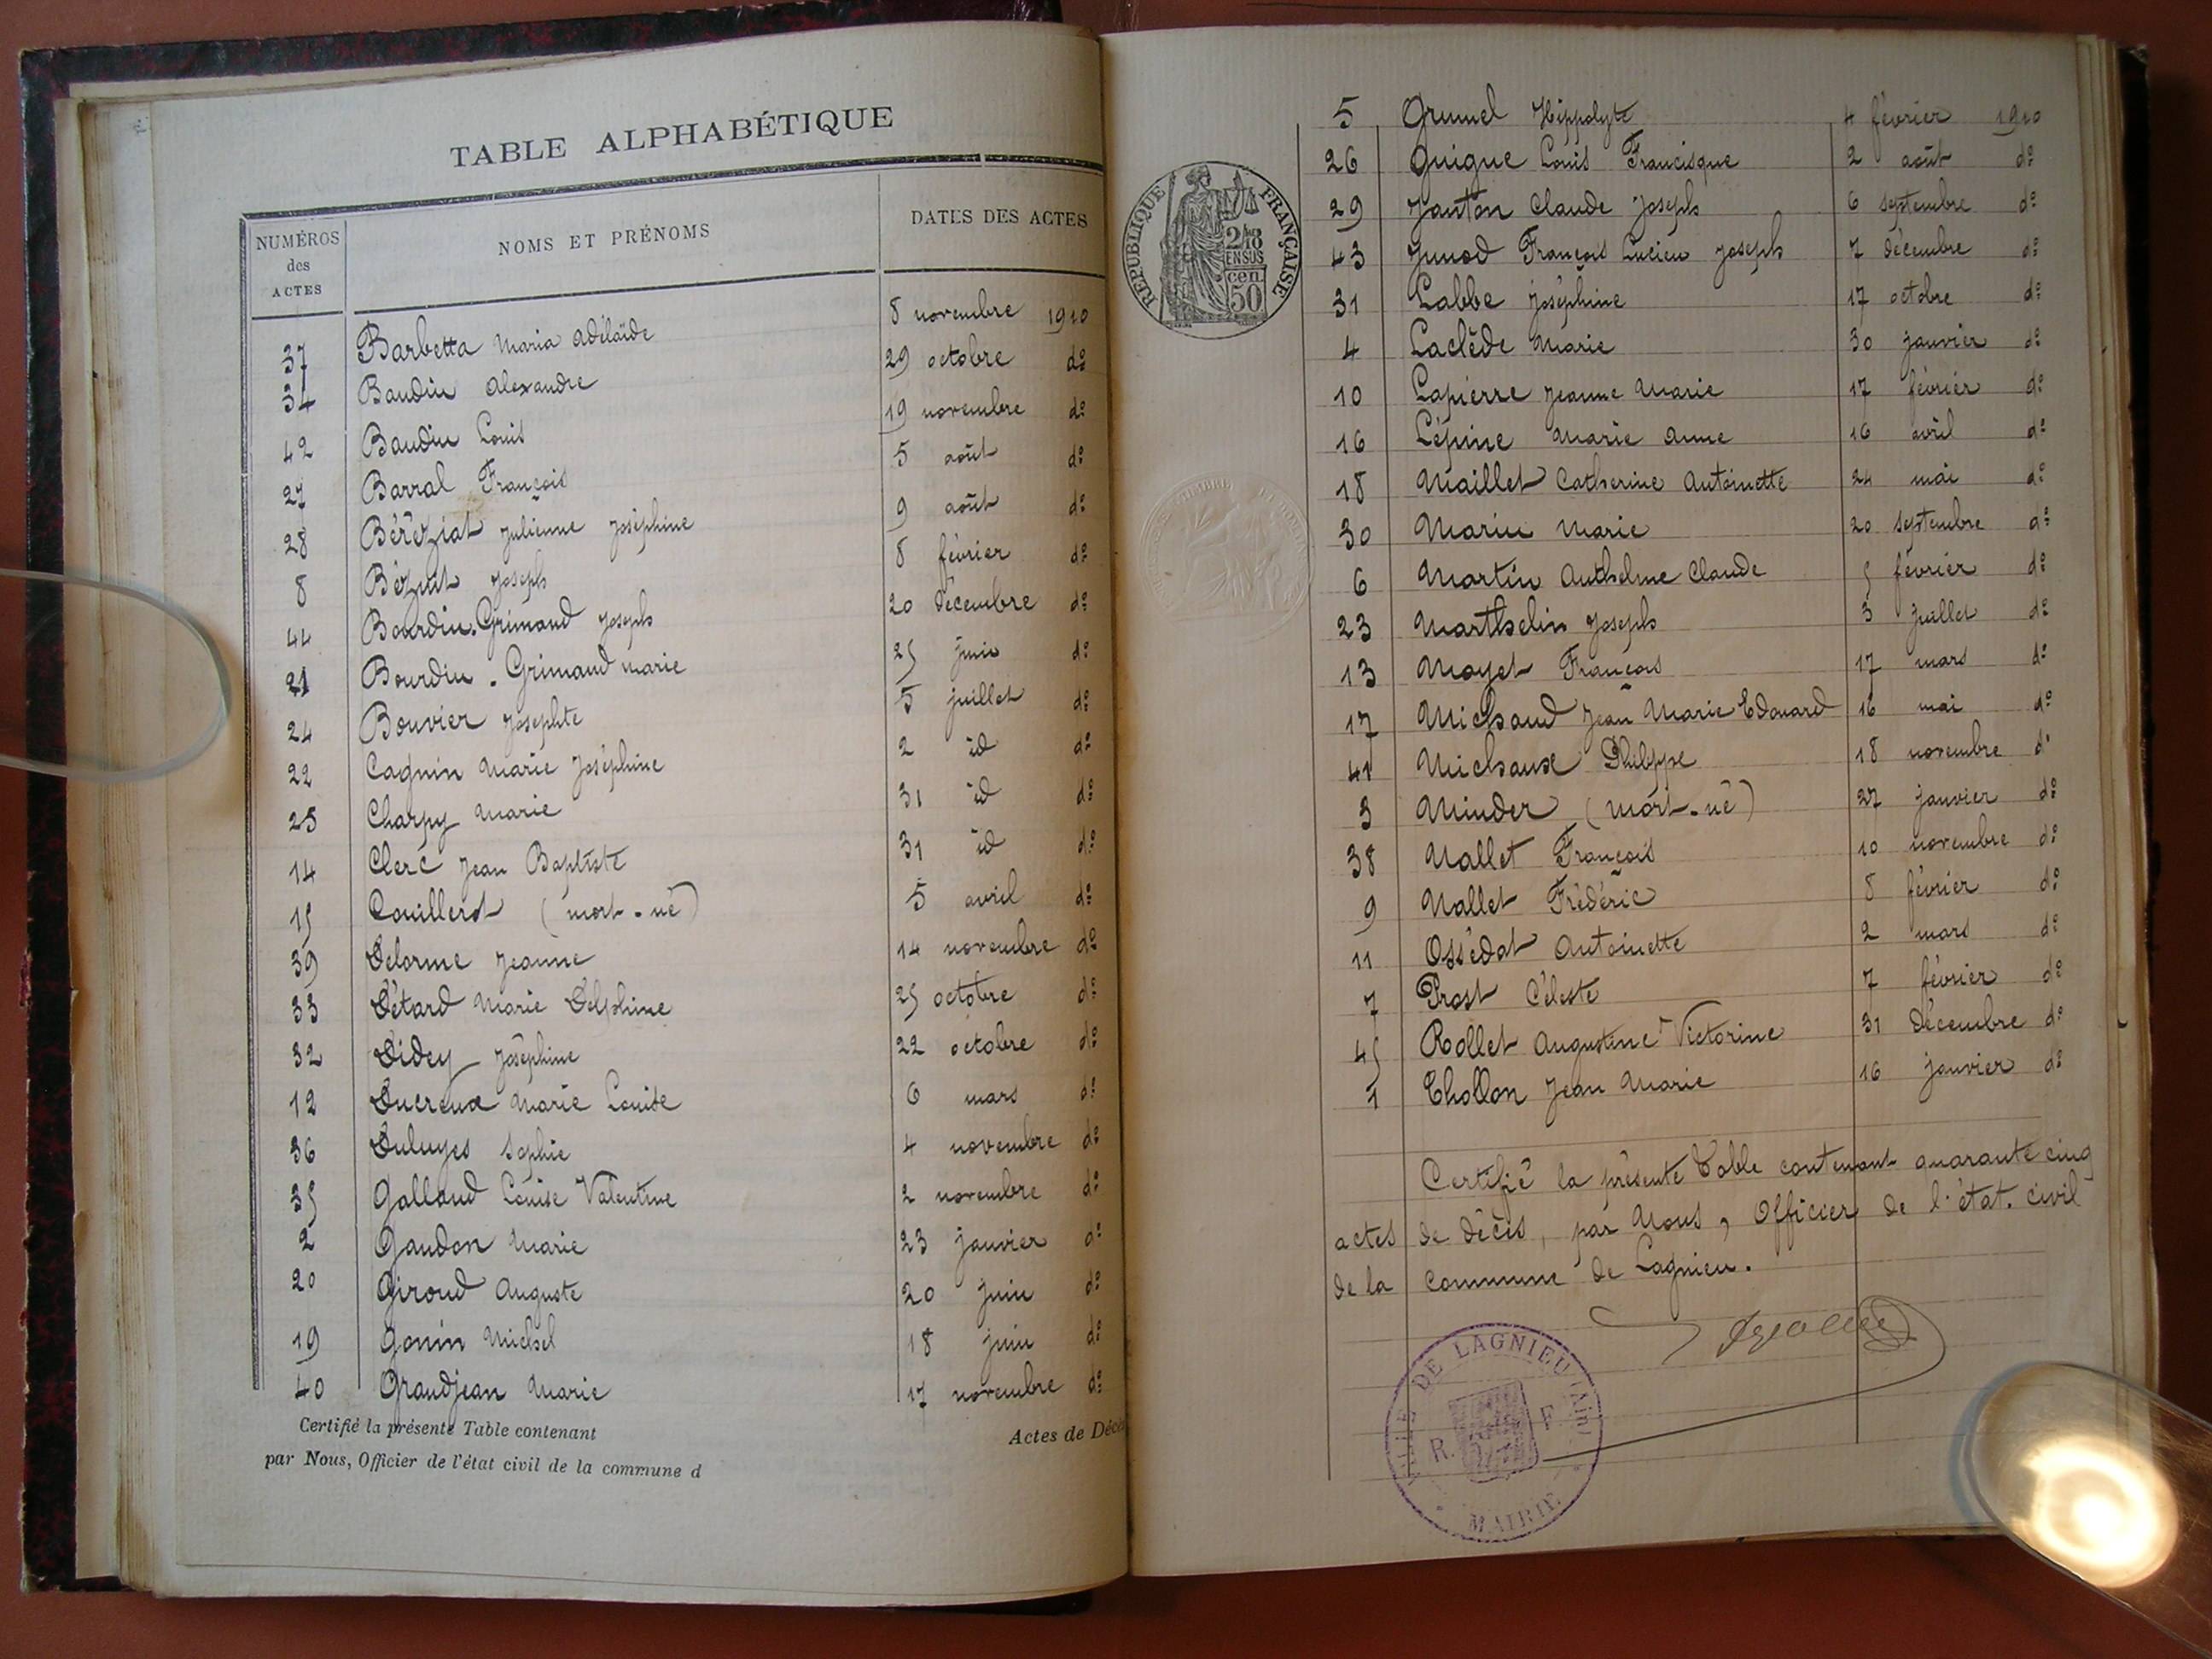 TABLE ALPHABÉTIQUE
NUMÉROS des ACTES NOMS ET PRÉNOMS DATES DES ACTES
37 Barbetta Maria Adélaïde 8 novembre 1910
34 Baudin Alexandre 29 octobre do
42 Baudin Louis 19 novembre do
27 Barral François 5 août do
28 Béréziat Julienne Joséphine 9 août do
8 Bézut Joseph 8 février do
44 Bourdin-Grimaud Joseph 20 décembre do
21 Bourdin-Grimaud Marie 25 juin do
24 Bouvier Josephte 5 juillet do
22 Cagnin Marie Joséphine 2 id do
25 Charpy Marie 31 id do
14 Clerc Jean Baptiste 31 id do
15 Couillerot (mort-né) 5 avril do
39 Delorme Jeanne 14 novembre do
33 Détard Marie Delphine 25 octobre do
32 Didey Joséphine 22 octobre do
12 Ducreux Marie Louise 6 mars do
36 Duluyes Sophie 4 novembre do
35 Galland Louise Valentine 2 novembre do
2 Gaudon Marie 23 janvier do
20 Giroud Auguste 20 juin do
19 Gonin Michel 18 juin do
40 Grandjean Marie 17 novembre do
Certifié la présente Table contenant Actes de Décè
par Nous, Officier de l'état civil de la commune d
RÉPUBLIQUE FRANÇAISE
2/10 EN SUS
50 cen
5 Grumel Hippolyte 4 février 1910
26 Guigue Louis Francisque 2 août do
29 Janton Claude Joseph 6 septembre do
43 Junod François Lucien Joseph 7 décembre do
31 Labbe Joséphine 17 octobre do
4 Laclède Marie 30 janvier do
10 Lapierre Jeanne Marie 17 février do
16 Lépine Marie Anne 16 avril do
18 Maillet Catherine Antoinette 24 mai do
30 Marin Marie 20 septembre do
6 Martin Anthelme Claude 5 février do
23 Marthelin Joseph 3 juillet do
13 Mayet François 17 mars do
17 Michaud Jean Marie Edouard 16 mai do
41 Michaux Philippe 18 novembre do
3 Minder (mort-né) 27 janvier do
38 Nallet François 10 novembre do
9 Nallet Frédéric 8 février do
11 Ossédat Antoinette 2 mars do
7 Prost Céleste 7 février do
45 Rollet Augustine Victorine 31 décembre do
1 Chollon Jean Marie 16 janvier do
Certifié la présente Table contenant quarante cinq
actes de décès, par Nous, Officier de l'état-civil
de la commune de Lagnieu.
MAIRIE DE LAGNIEU (Ain)
R. F.
MAIRIE